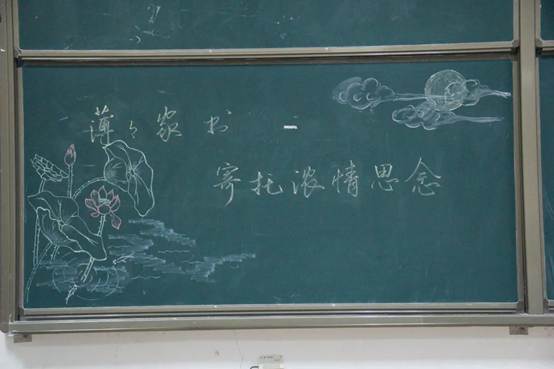 薄々家书
寄托浓情思念